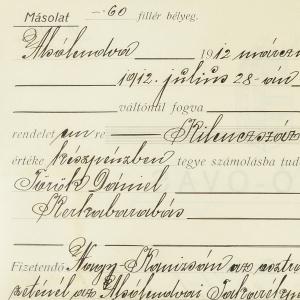 Másolat -.60 fillér bélyeg.
Alsólendva 1912 március
1912. július 28-án
váltóntúl fogva
rendelet em re Kilenczszáz
értéke készpénzben tegye számolásba tud
Török Dániel
Kerkabarabás
Fizetendő Nagy-Kanizsán az osztrá
zeténél az Alsólendvai Takarékp